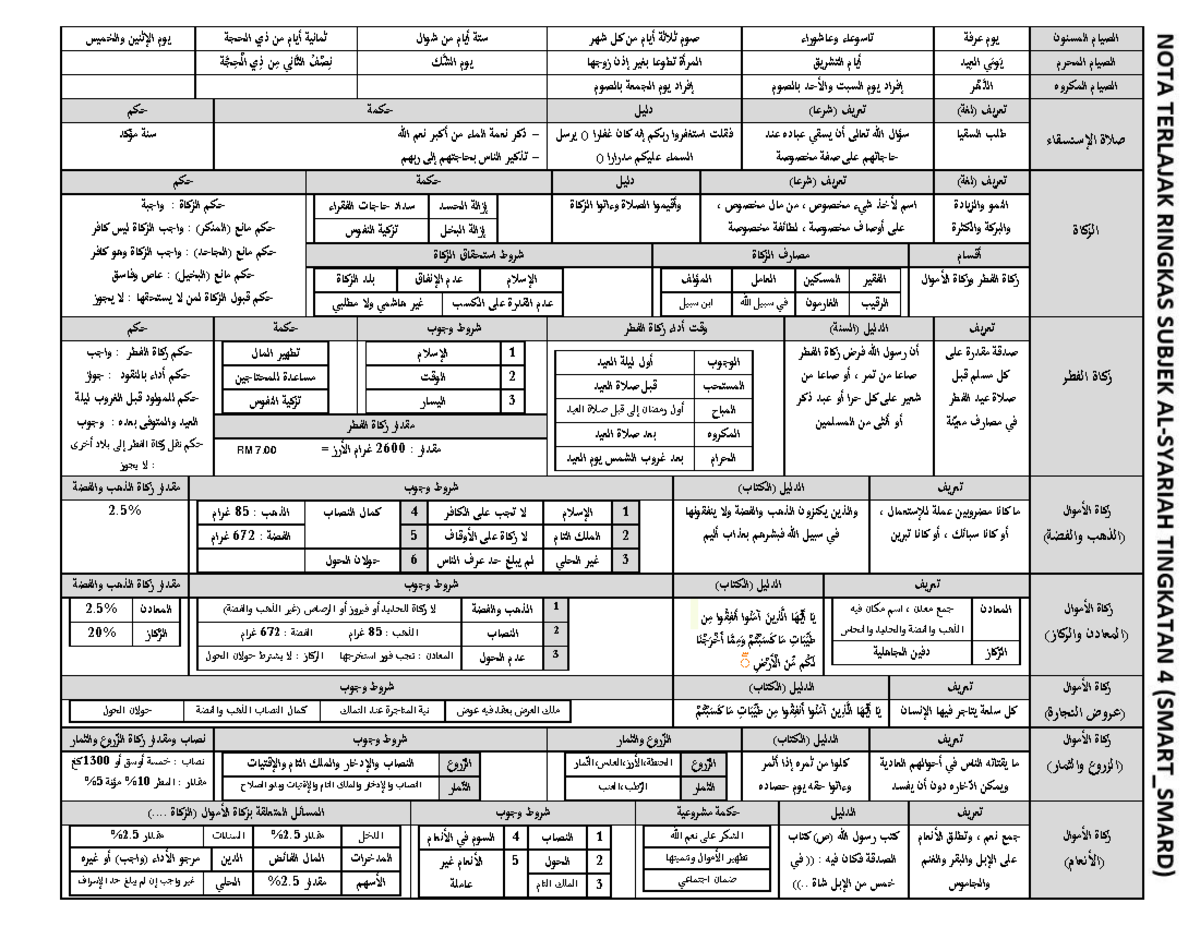 NOTA TERLAJAK RINGKAS SUBJEK AL-SYARIAH TINGKATAN 4 (SMART_SMARD)
الصيام المسنون
يوم عرفة
تاسوعاء وعاشوراء
صوم ثلاثة أيام من كل شهر
ستة أيام من شوال
ثمانية أيام من ذي الحجة
يوم الإثنين والخميس
الصيام المحرم
يومَي العيد
أيام التشريق
المرأة تطوعا بغير إذن زوجها
يوم الشّك
نِصْفُ الثَّانِي مِن ذِي الْحِجَّة
الصيام المكروه
الدَّهْر
إفراد يوم السبت والأحد بالصوم
إفراد يوم الجمعة بالصوم
صلاة الإستسقاء
تعريف (لغة)
تعريف (شرعا)
دليل
حكمة
حكم
طلب السقيا
سؤال الله تعالى أن يسقي عباده عند
حاجاتهم على صفة مخصوصة
فقلت استغفروا ربكم إنه كان غفارا () يرسل
السماء عليكم مدرارا ()
– ذكر نعمة الماء من أكبر نعم الله
– تذكير الناس بحاجتهم إلى ربهم
سنة مؤكد
الزكاة
تعريف (لغة)
تعريف (شرعا)
دليل
حكمة
حكم
النمو والزيادة
والبركة والكثرة
اسم لأخذ شيء مخصوص ، من مال مخصوص ،
على أوصاف مخصوصة ، لطائفة مخصوصة
وأقيموا الصلاة وءاتوا الزكاة
إزالة الحسد
سداد حاجات الفقراء
إزالة البخل
تزكية النفوس
حكم الزكاة : واجبة
حكم مانع (المنكر) : واجب الزكاة ليس كافر
حكم مانع (الجاحد) : واجب الزكاة وهو كافر
حكم مانع (البخيل) : عاص وفاسق
حكم قبول الزكاة لمن لا يستحقها : لا يجوز
أقسام
مصارف الزكاة
شروط استحقاق الزكاة
زكاة الفطر وزكاة الأموال
الفقير
المسكين
العامل
المؤلف
الرقيب
الغارمون
في سبيل الله
ابن سبيل
الإسلام
عدم الإنفاق
بلد الزكاة
عدم القدرة على الكسب
غير هاشمي ولا مطلبي
زكاة الفطر
تعريف
الدليل (السنة)
وقت أداء زكاة الفطر
شروط وجوب
حكمة
حكم
صدقة مقدرة على
كل مسلم قبل
صلاة عيد الفطر
في مصارف معيّنة
أن رسول الله فرض زكاة الفطر
صاعا من تمر ، أو صاعا من
شعير على كل حرا أو عبد ذكر
أو أنثى من المسلمين
الوجوب
أول ليلة العيد
المستحب
قبل صلاة العيد
المباح
أول رمضان إلى قبل صلاة العيد
المكروه
بعد صلاة العيد
الحرام
بعد غروب الشمس يوم العيد
1
الإسلام
2
الوقت
3
اليسار
تطهير المال
مساعدة للمحتاجين
تزكية النفوس
مقدار زكاة الفطر
مقدار : 2600 غرام الأرز = RM 7.00
حكم زكاة الفطر : واجب
حكم أداء بالنقود : جواز
حكم للمولود قبل الغروب ليلة
العيد والمتوفى بعده : وجوب
حكم نقل زكاة الفطر إلى بلاد أخرى
: لا يجوز
زكاة الأموال
(الذهب والفضة)
تعريف
الدليل (الكتاب)
شروط وجوب
مقدار زكاة الذهب والفضة
ما كانا مضروبين عملة للإستعمال ،
أو كانا سبائك ، أو كانا تبرين
والذين يكنزون الذهب والفضة ولا ينفقونها
في سبيل الله فبشرهم بعذاب أليم
1
الإسلام
لا تجب على الكافر
4
كمال النصاب
الذهب : 85 غرام
2
الملك التام
لا زكاة على الأوقاف
5
الفضة : 672 غرام
3
غير الحلي
لم يبلغ حد عرف الناس
6
حولان الحول
2.5%
زكاة الأموال
(المعادن والركاز)
تعريف
الدليل (الكتاب)
شروط وجوب
مقدار زكاة الذهب والفضة
المعادن
جمع معدن ، اسم مكان فيه
الذهب والفضة والحديد والنحاس
الرّكاز
دفين الجاهلية
يَا أَيُّهَا الَّذِينَ آمَنُوا أَنفِقُوا مِن
طَيِّبَاتِ مَا كَسَبْتُمْ وَمِمَّا أَخْرَجْنَا
لَكُم مِّنَ الْأَرْضِ
1
الذهب والفضة
لا زكاة للحديد أو فيروز أو الرصاص (غير الذهب والفضة)
2
النصاب
الذهب : 85 غرام
الفضة : 672 غرام
3
عدم الحول
المعادن : تجب فور استخرجها
الركاز : لا يشترط حولان الحول
المعادن
2.5%
الرّكاز
20%
زكاة الأموال
(عروض التجارة)
تعريف
الدليل (الكتاب)
شروط وجوب
كل سلعة يتاجر فيها الإنسان
يَا أَيُّهَا الَّذِينَ آمَنُوا أَنفِقُوا مِن طَيِّبَاتِ مَا كَسَبْتُمْ
ملك العرض بعقد فيه عوض
نية المتاجرة عند التملك
كمال النصاب الذهب والفضة
حولان الحول
زكاة الأموال
(الزروع والثمار)
تعريف
الدليل (الكتاب)
الزّروع والثمار
شروط وجوب
نصاب ومقدار زكاة الزّروع والثمار
ما يقتاته الناس في أحوالهم العادية
ويمكن ادّخاره دون أن يفسد
كلوا من ثمره إذا أثمر
وءاتوا حقه يوم حصاده
الزّروع
الحنطة،الأرز،العدس،الثمار
الثّمار
الرّطب،العنب
الزّروع
النصاب والإدخار والملك التام والإقتيات
الثّمار
النصاب والإدخار والملك التام والإقتيات وبدو الصلاح
نصاب : خمسة أوسق أو 1300كغ
مقدار : المطر 10% مؤنة 5%
زكاة الأموال
(الأنعام)
تعريف
الدليل
حكمة مشروعية
شروط وجوب
المسائل المتعلقة بزكاة الأموال (الزكاة ....)
جمع نعم ، وتطلق الأنعام
على الإبل والبقر والغنم
والجاموس
كتب رسول الله (ص) كتاب
الصدقة فكان فيه : (( في
خمس من الإبل شاة ..))
الشكر على نعم الله
تطهير الأموال وتنميتها
ضمان اجتماعي
1
النصاب
4
السوم في الأنعام
2
الحول
5
الأنعام غير
عاملة
3
الملك التام
الدخل
مقدار 2.5%
السندات
مقدار 2.5%
المدخرات
المال الفائض
الدين
مرجو الأداء (واجب) أو غيره
الأسهم
مقدار 2.5%
الحلي
غير واجب إن لم يبلغ حد الإسراف